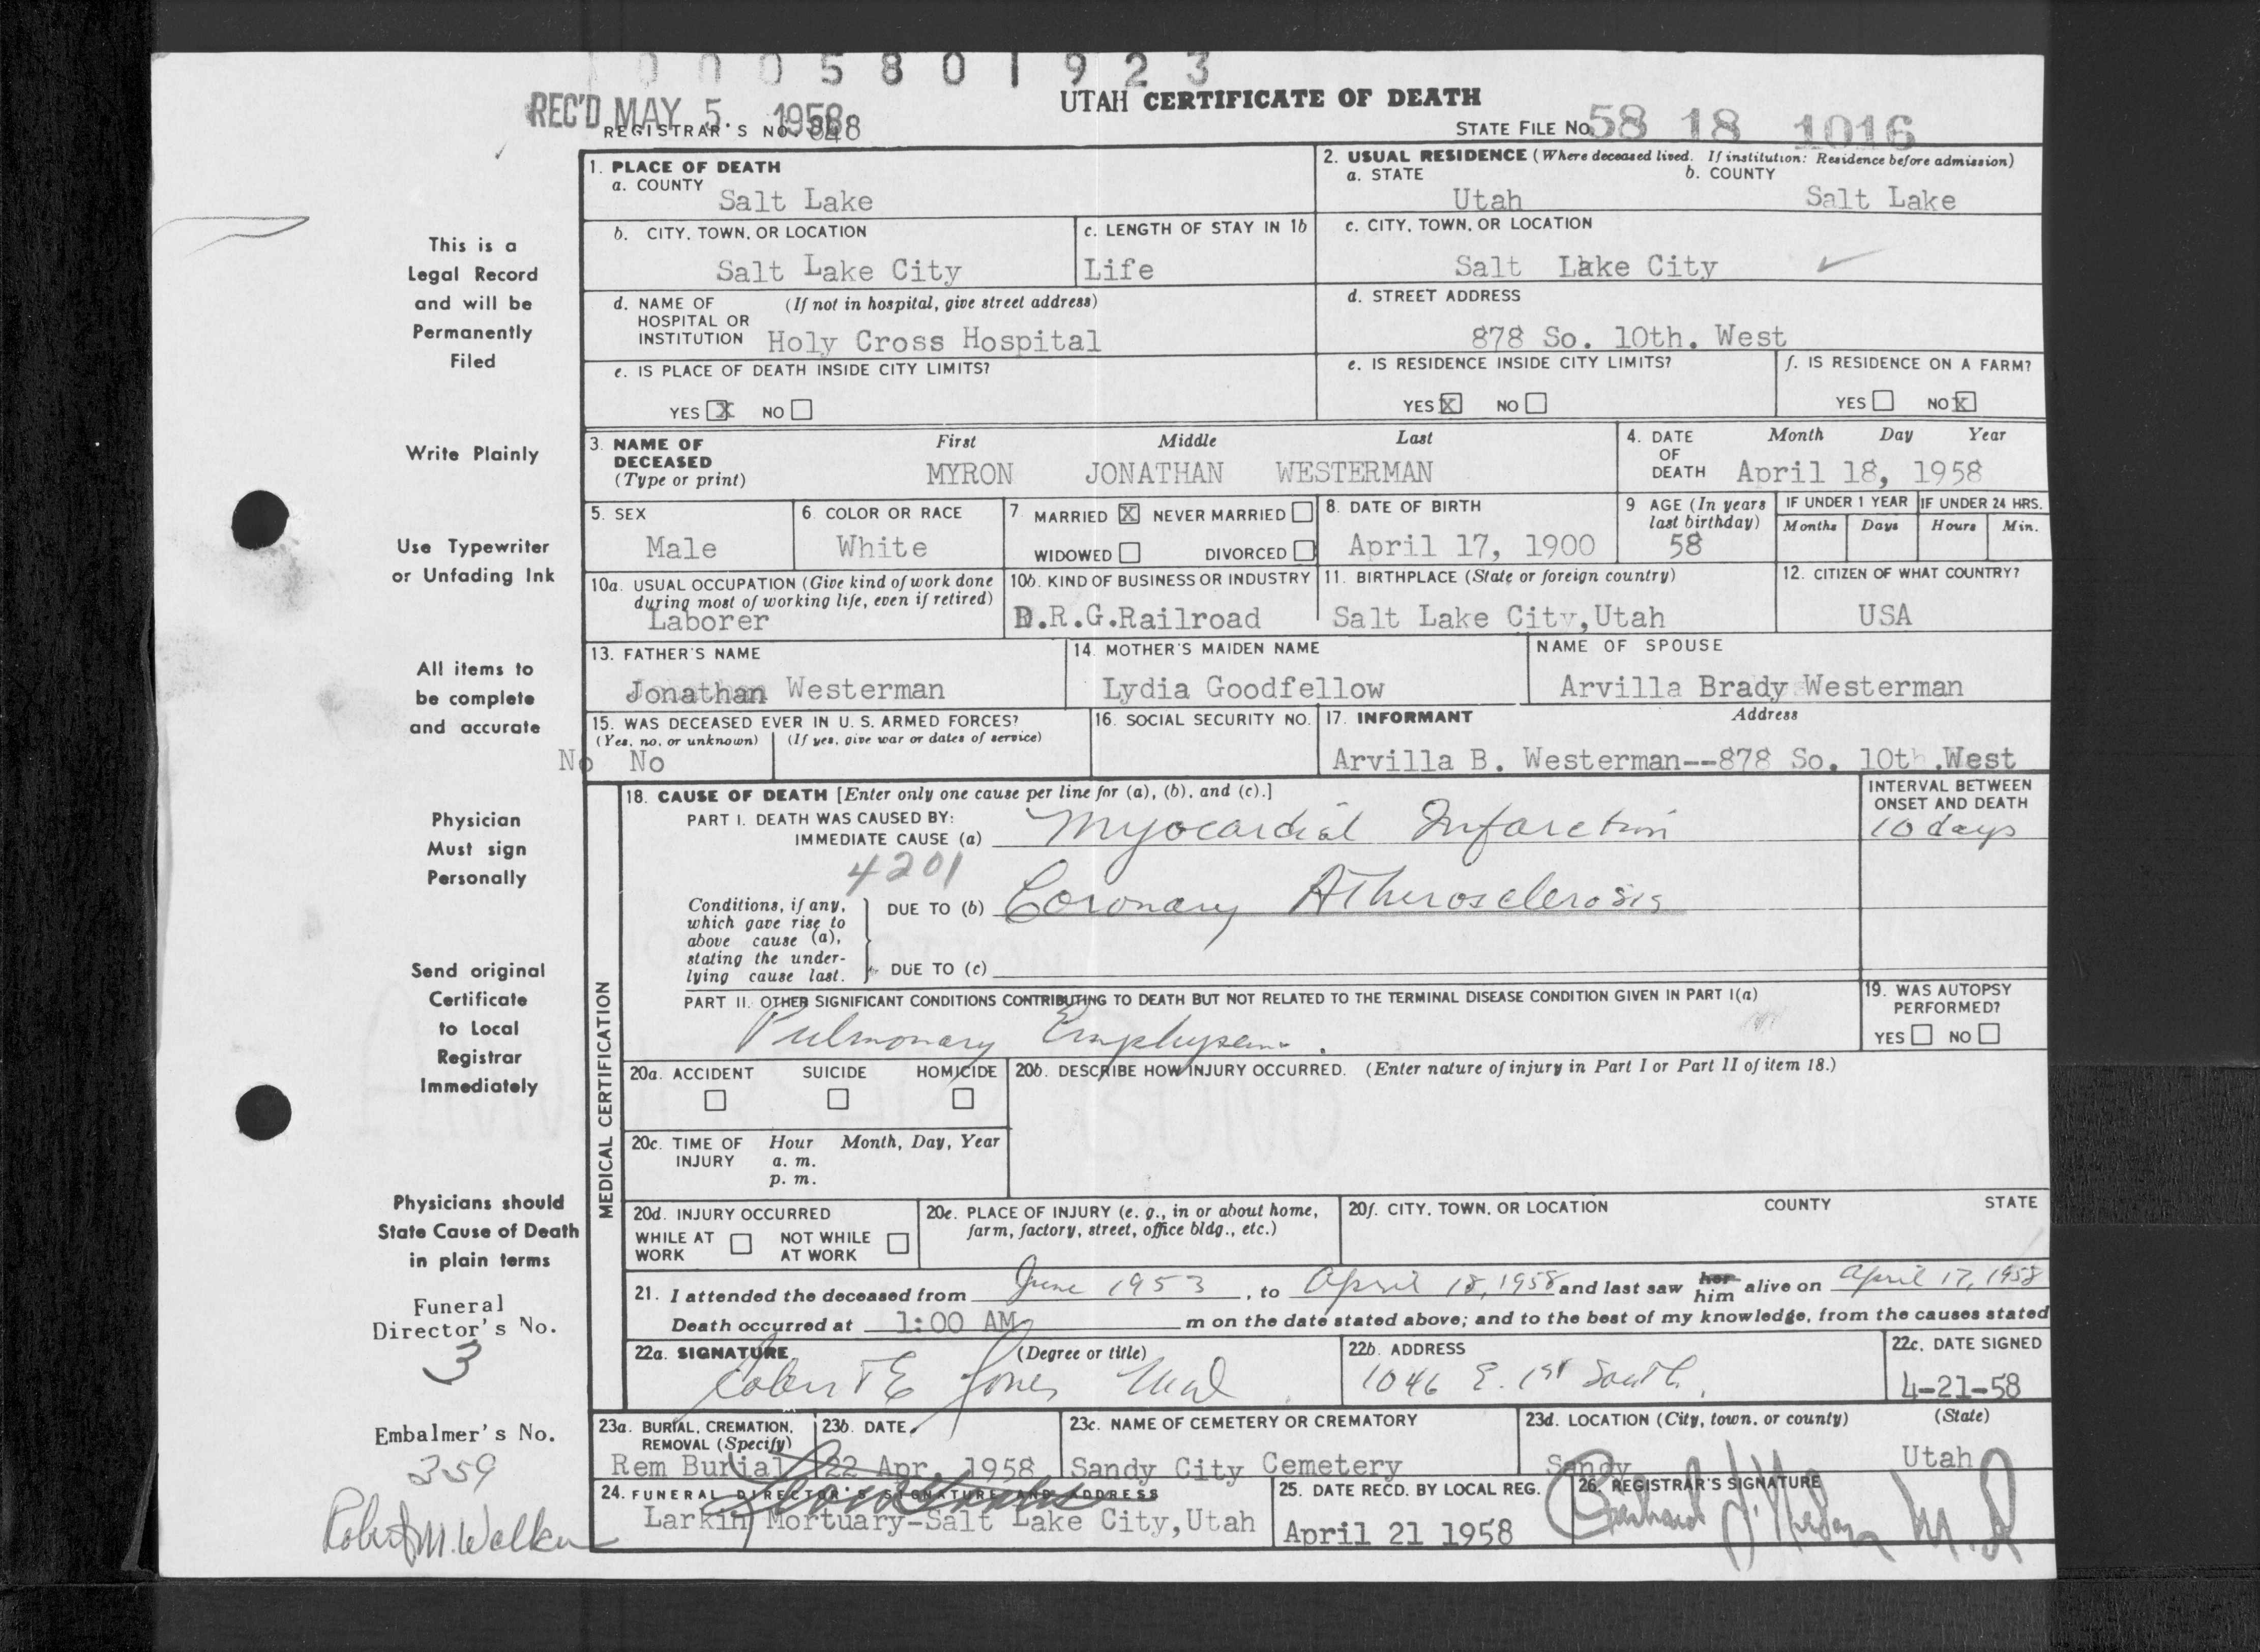 0 0 0 5 8 0 1 9 2 3
REC'D MAY 5. 1958
UTAH CERTIFICATE OF DEATH
REGISTRAR'S NO. 848
STATE FILE No. 58 18 1016
This is a
Legal Record
and will be
Permanently
Filed
Write Plainly
Use Typewriter
or Unfading Ink
All items to
be complete
and accurate
Physician
Must sign
Personally
Send original
Certificate
to Local
Registrar
Immediately
Physicians should
State Cause of Death
in plain terms
Funeral
Director's No.
3
Embalmer's No.
359
Robert M. Walker
1. PLACE OF DEATH
a. COUNTY
Salt Lake
2. USUAL RESIDENCE (Where deceased lived. If institution: Residence before admission)
a. STATE b. COUNTY
Utah Salt Lake
b. CITY, TOWN, OR LOCATION
Salt Lake City
c. LENGTH OF STAY IN 1b
Life
c. CITY, TOWN, OR LOCATION
Salt Lake City
d. NAME OF (If not in hospital, give street address)
HOSPITAL OR
INSTITUTION Holy Cross Hospital
d. STREET ADDRESS
878 So. 10th. West
e. IS PLACE OF DEATH INSIDE CITY LIMITS?
YES X NO
e. IS RESIDENCE INSIDE CITY LIMITS?
YES X NO
f. IS RESIDENCE ON A FARM?
YES NO X
3. NAME OF First Middle Last
DECEASED
(Type or print) MYRON JONATHAN WESTERMAN
4. DATE Month Day Year
OF
DEATH April 18, 1958
5. SEX
Male
6. COLOR OR RACE
White
7. MARRIED X NEVER MARRIED
WIDOWED DIVORCED
8. DATE OF BIRTH
April 17, 1900
9 AGE (In years
last birthday)
58
IF UNDER 1 YEAR
Months Days
IF UNDER 24 HRS.
Hours Min.
10a. USUAL OCCUPATION (Give kind of work done
during most of working life, even if retired)
Laborer
10b. KIND OF BUSINESS OR INDUSTRY
D.R.G.Railroad
11. BIRTHPLACE (State or foreign country)
Salt Lake City,Utah
12. CITIZEN OF WHAT COUNTRY?
USA
13. FATHER'S NAME
Jonathan Westerman
14. MOTHER'S MAIDEN NAME
Lydia Goodfellow
NAME OF SPOUSE
Arvilla Brady Westerman
15. WAS DECEASED EVER IN U. S. ARMED FORCES?
(Yes, no, or unknown) (If yes, give war or dates of service)
No No
16. SOCIAL SECURITY NO.
17. INFORMANT Address
Arvilla B. Westerman--878 So. 10th.West
MEDICAL CERTIFICATION
18. CAUSE OF DEATH [Enter only one cause per line for (a), (b), and (c).]
PART I. DEATH WAS CAUSED BY:
IMMEDIATE CAUSE (a) Myocardial Infarction
INTERVAL BETWEEN
ONSET AND DEATH
10 days
4201
Conditions, if any,
which gave rise to
above cause (a),
stating the under-
lying cause last.
DUE TO (b) Coronary Atherosclerosis
DUE TO (c)
PART II. OTHER SIGNIFICANT CONDITIONS CONTRIBUTING TO DEATH BUT NOT RELATED TO THE TERMINAL DISEASE CONDITION GIVEN IN PART I(a)
Pulmonary Emphysema.
19. WAS AUTOPSY
PERFORMED?
YES NO
20a. ACCIDENT SUICIDE HOMICIDE
20b. DESCRIBE HOW INJURY OCCURRED. (Enter nature of injury in Part I or Part II of item 18.)
20c. TIME OF Hour Month, Day, Year
INJURY a. m.
p. m.
20d. INJURY OCCURRED
WHILE AT NOT WHILE
WORK AT WORK
20e. PLACE OF INJURY (e. g., in or about home,
farm, factory, street, office bldg., etc.)
20f. CITY, TOWN, OR LOCATION COUNTY STATE
21. I attended the deceased from June 1953, to April 18, 1958 and last saw her him alive on April 17, 1958
Death occurred at 1:00 AM m on the date stated above; and to the best of my knowledge, from the causes stated
22a. SIGNATURE (Degree or title)
Robert E Jones MD
22b. ADDRESS
1046 E. 1st South.
22c. DATE SIGNED
4-21-58
23a. BURIAL, CREMATION,
REMOVAL (Specify)
Rem Burial
23b. DATE
22 Apr. 1958
23c. NAME OF CEMETERY OR CREMATORY
Sandy City Cemetery
23d. LOCATION (City, town, or county) (State)
Sandy Utah
24. FUNERAL DIRECTOR'S SIGNATURE AND ADDRESS
Larkin Mortuary-Salt Lake City,Utah
25. DATE RECD. BY LOCAL REG.
April 21 1958
26. REGISTRAR'S SIGNATURE
M.D